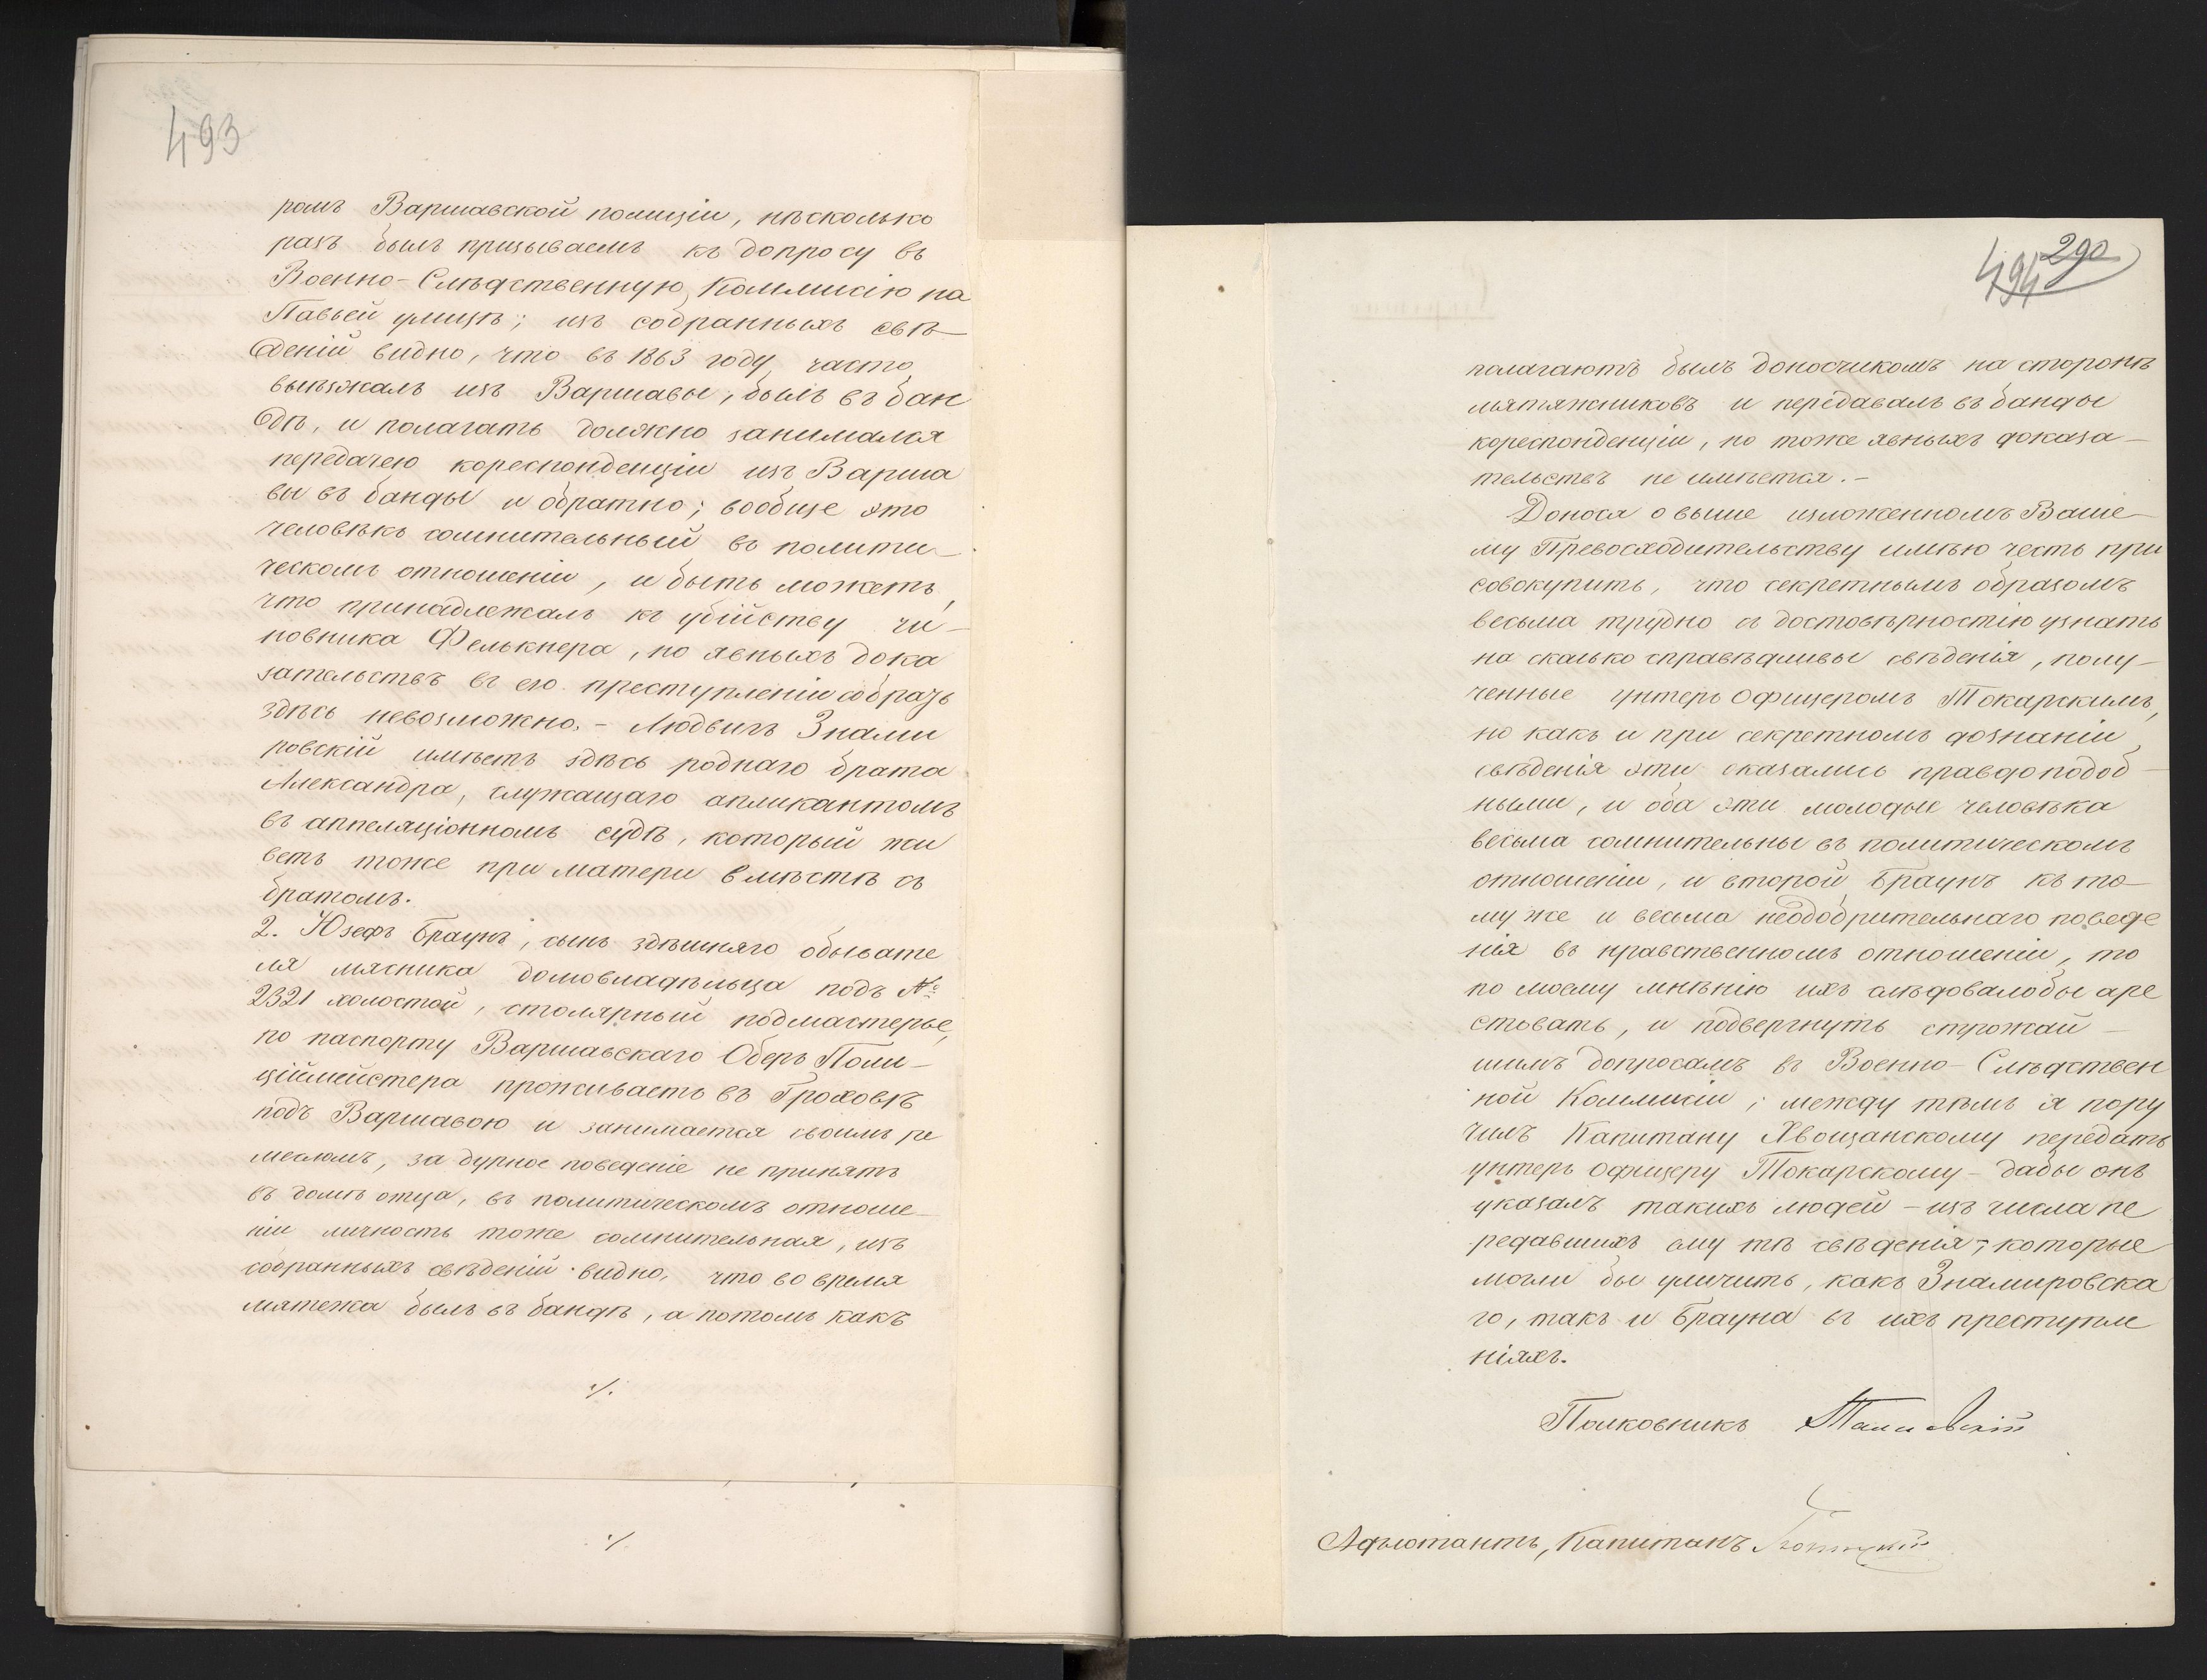 493
ромъ Варшавской полиціи, нѣсколько
разъ былъ призываемъ къ допросу въ
Военно-Слѣдственную Коммисію на
Павьей улицѣ; изъ собранныхъ свѣ-
деній видно, что въ 1863 году часто
выѣзжалъ изъ Варшавы, былъ въ бан
дѣ, и полагать должно занимался
передачею кореспонденціи изъ Варша
вы въ банды и обратно; вообще это
человѣкъ сомнительный въ полити-
ческомъ отношеніи, и быть можетъ,
что принадлежалъ къ убійству чи-
новника Фелькнера, но явныхъ дока
зательствъ въ его преступленіи собрать
здѣсь невозможно. - Людвигъ Знами
ровскій имѣетъ здѣсь роднаго брата
Александра, служащаго апликантомъ
въ аппеляціонномъ судѣ, который жи
ветъ тоже при матери вмѣстѣ съ
братомъ.
2. Юзефъ Браунъ, сынъ здѣшняго обывате
ля мясника домовладѣльца подъ №
2321 холостой, столярный подмастерье,
по паспорту Варшавскаго Оберъ Поли-
ціймейстера проживаетъ въ Гроховѣ
подъ Варшавою и занимается своимъ ре
месломъ, за дурное поведеніе не принятъ
въ домъ отца, въ политическомъ отноше-
ніи личность тоже сомнительная, изъ
собранныхъ свѣденій видно, что во время
мятежа былъ въ бандѣ, а потомъ какъ
./.
./.
290
494
полагаютъ былъ доносчикомъ на сторонѣ
мятяжниковъ и передавалъ въ банды
кореспонденціи, но тоже явныхъ доказа-
тельствъ не имѣется. -
Донося о выше изложенномъ Ваше-
му Превосходительству имѣю честь при
совокупить, что секретнымъ образомъ
весьма трудно съ достовѣрностію узнать
на сколько справѣдливы свѣденія, полу-
ченные унтеръ офицеромъ Токарскимъ,
но какъ и при секретномъ дознаніи,
свѣденія эти оказались правдоподоб-
ными, и оба эти молодые человѣка
весьма сомнительны въ политическомъ
отношеніи, и второй Браунъ къ то-
му же и весьма неодобрительнаго поведе
нія въ нравственномъ отношеніи, то
по моему мнѣнію ихъ слѣдовалобы аре
стовать, и подвергнуть строжай-
шимъ допросамъ въ Военно-Слѣдствен
ной Коммисіи; между тѣмъ я пору
чилъ Капитану Хвощанскому передать
унтеръ офицеру Токарскому - дабы онъ
указалъ такихъ людей - изъ числа пе
редавшихъ ему тѣ свѣденія, которые
могли бы уличить, какъ Знамировска
го, такъ и Брауна въ ихъ преступле
ніяхъ.
Полковникъ
Адъютантъ, Капитанъ